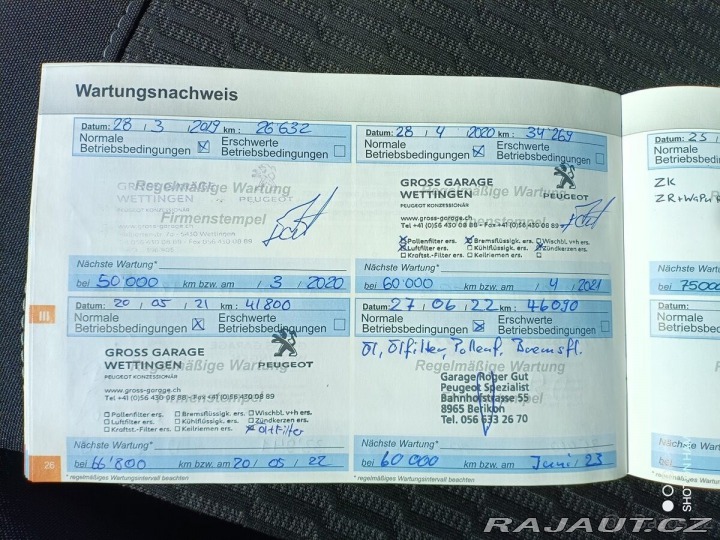 Wartungsnachweis
Datum: 28 / 3 / 2019 km: 26'632
Normale Betriebsbedingungen ☒ Erschwerte Betriebsbedingungen ☐
Regelmäßige Wartung
GROSS GARAGE
WETTINGEN
PEUGEOT KONZESSIONÄR
PEUGEOT
Firmenstempel
www.gross-garage.ch
Nächste Wartung*
bei 50'000 km bzw. am / 3 / 2020
Datum: 28 / 4 / 2020 km: 34'269
Normale Betriebsbedingungen ☒ Erschwerte Betriebsbedingungen ☐
Regelmäßige Wartung
GROSS GARAGE
WETTINGEN
PEUGEOT KONZESSIONÄR
PEUGEOT
Firmenstempel
www.gross-garage.ch
Tel +41 (0)56 430 08 88 - Fax +41 (0)56 430 08 89
☒ Pollenfilter ers. ☒ Bremsflüssigk. ers. ☐ Wischbl. v+h ers.
☒ Luftfilter ers. ☐ Kühlflüssigk. ers. ☐ Zündkerzen ers.
☐ Kraftst.-Filter ers. ☐ Keilriemen ers. ☐
Nächste Wartung*
bei 60'000 km bzw. am / 4 / 2021
III
Datum: 20 / 05 / 21 km: 41'800
Normale Betriebsbedingungen ☒ Erschwerte Betriebsbedingungen ☐
Regelmäßige Wartung
GROSS GARAGE
WETTINGEN
PEUGEOT KONZESSIONÄR
PEUGEOT
www.gross-garage.ch
Tel +41 (0)56 430 08 88 - Fax +41 (0)56 430 08 89
☐ Pollenfilter ers. ☐ Bremsflüssigk. ers. ☐ Wischbl. v+h ers.
☐ Luftfilter ers. ☐ Kühlflüssigk. ers. ☐ Zündkerzen ers.
☐ Kraftst.-Filter ers. ☐ Keilriemen ers. ☒ Ölfilter
Nächste Wartung*
bei 66'800 km bzw. am 20 / 05 / 22
* regelmäßiges Wartungsintervall beachten
26
Datum: 27 / 06 / 22 km: 46090
Normale Betriebsbedingungen ☒ Erschwerte Betriebsbedingungen ☐
Öl, Ölfilter, Pollenf. Bremsfl.
Regelmäßige Wartung
Garage Roger Gut
Peugeot Spezialist
Bahnhofstrasse 55
8965 Berikon
Tel. 056 633 26 70
Nächste Wartung*
bei 60 000 km bzw. am Juni 23
* regelmäßiges Wartungsintervall beachten
Datum: 25 /
Normale
Betriebsbedingungen
ZK
Nächste Wartung*
bei 75000
Datum:
Normale
Betriebsbedingun
Nächste Wartung*
bei
* regelmäßiges Wartung
SHOT ON
RAJAUT.CZ